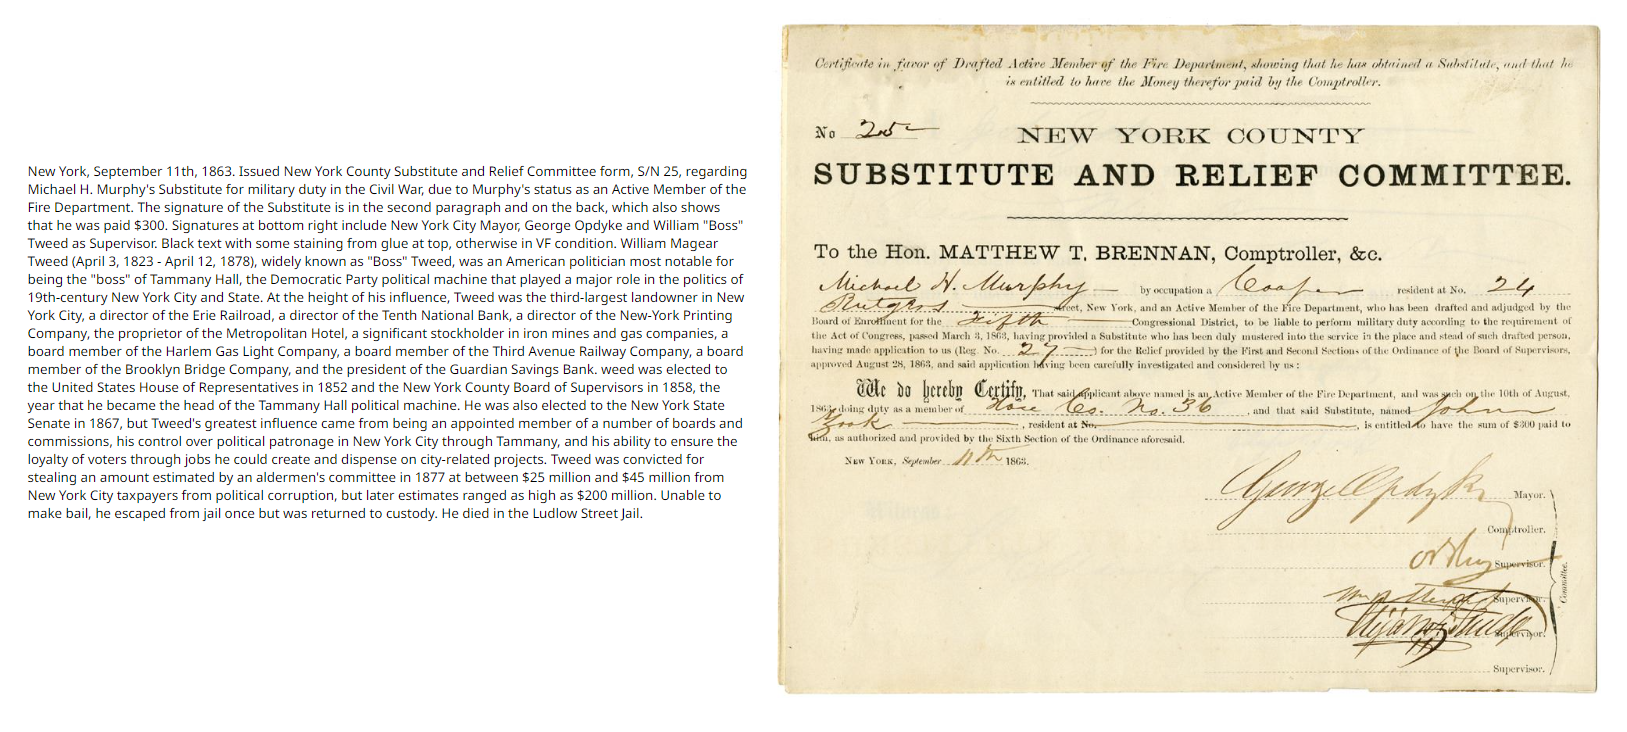 New York, September 11th, 1863. Issued New York County Substitute and Relief Committee form, S/N 25, regarding
Michael H. Murphy's Substitute for military duty in the Civil War, due to Murphy's status as an Active Member of the
Fire Department. The signature of the Substitute is in the second paragraph and on the back, which also shows
that he was paid $300. Signatures at bottom right include New York City Mayor, George Opdyke and William "Boss"
Tweed as Supervisor. Black text with some staining from glue at top, otherwise in VF condition. William Magear
Tweed (April 3, 1823 - April 12, 1878), widely known as "Boss" Tweed, was an American politician most notable for
being the "boss" of Tammany Hall, the Democratic Party political machine that played a major role in the politics of
19th-century New York City and State. At the height of his influence, Tweed was the third-largest landowner in New
York City, a director of the Erie Railroad, a director of the Tenth National Bank, a director of the New-York Printing
Company, the proprietor of the Metropolitan Hotel, a significant stockholder in iron mines and gas companies, a
board member of the Harlem Gas Light Company, a board member of the Third Avenue Railway Company, a board
member of the Brooklyn Bridge Company, and the president of the Guardian Savings Bank. weed was elected to
the United States House of Representatives in 1852 and the New York County Board of Supervisors in 1858, the
year that he became the head of the Tammany Hall political machine. He was also elected to the New York State
Senate in 1867, but Tweed's greatest influence came from being an appointed member of a number of boards and
commissions, his control over political patronage in New York City through Tammany, and his ability to ensure the
loyalty of voters through jobs he could create and dispense on city-related projects. Tweed was convicted for
stealing an amount estimated by an aldermen's committee in 1877 at between $25 million and $45 million from
New York City taxpayers from political corruption, but later estimates ranged as high as $200 million. Unable to
make bail, he escaped from jail once but was returned to custody. He died in the Ludlow Street Jail.
Certificate in favor of Drafted Active Member of the Fire Department, showing that he has obtained a Substitute, and that he
is entitled to have the Money therefor paid by the Comptroller.
No 25
NEW YORK COUNTY
SUBSTITUTE AND RELIEF COMMITTEE.
To the Hon. MATTHEW T. BRENNAN, Comptroller, &c.
Michael H. Murphy by occupation a Cooper resident at No. 24
Rutgers street, New York, and an Active Member of the Fire Department, who has been drafted and adjudged by the
Board of Enrollment for the Fifth Congressional District, to be liable to perform military duty according to the requirement of
the Act of Congress, passed March 3, 1863, having provided a Substitute who has been duly mustered into the service in the place and stead of such drafted person,
having made application to us (Reg. No. 27) for the Relief provided by the First and Second Sections of the Ordinance of the Board of Supervisors,
approved August 28, 1863, and said application having been carefully investigated and considered by us :
We do hereby Certify, That said applicant above named is an Active Member of the Fire Department, and was such on the 10th of August,
1863, doing duty as a member of Hose Co. No. 36, and that said Substitute, named John
, resident at No. , is entitled to have the sum of $300 paid to
him, as authorized and provided by the Sixth Section of the Ordinance aforesaid.
NEW YORK, September 11th 1863.
George Opdyke Mayor.
Comptroller.
Supervisor.
Supervisor.
Supervisor.
Supervisor.
Committee.